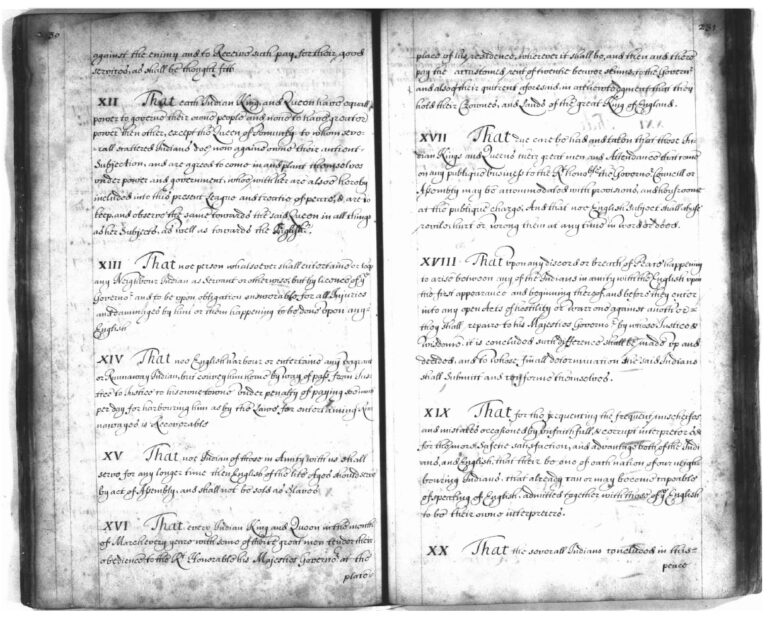 230
against the enimy and to Receive such pay for their good
servires, as shall be thought fitt
XII That each Indian King and Queen have equall
power to governe their owne people and none to have greater
power then other, except the Queen of Pomunky to whom seve-
rall scattered Indians doe now againe owne their antient
Subjection, and are agreed to come in and plant themselves
under power and government, whoe with her are alsoe hereby
included into this present League and treatie of peace, & are to
keep, and observe the same towards the said Queen in all things
as her Subjects, as well as towards the English.
XIII That noe person whatsoever shall entertaine or keep
any Neighbour Indian as Servant or otherwise, but by licence of ye
Governor and to be upon obligation answerable for all Injuries
and dammages by him or them happening to be done upon any
English
XIV That noe English harbour or entertaine any vagrant
or Runnaway Indian, but convey him home by way of pass, from Jus-
tice to Justice to his owne towne under penalty of paying soe much
per day for harbouring him as by the Law for entertaining Run-
nawayes is Recoverable
XV That noe Indian of those in Amity with us shall
serve for any longer time then English of the like Ages should serve
by act of Assembly, and shall not be sold as Slaves
XVI That every Indian King and Queen in the month
of March every yeare with some of theire great men tender their
obedience to the Rt Honorable his Majesties Governor at the
place
231
place of his residence, wherever it shall be, and then and there
pay the accustomed rent of twentie beaver skinns, to the Governor
and alsoe their quitrent aforesaid, in acknowledgment that they
hold their Crownes, and Lands of the great King of England.
XVII That due care be had and taken that those In-
dian Kings and Queens their great men and Attendance that come
on any publique buisness to the Rt Honoble the Governor Councell or
Assembly may be accommodated with provisions, and houseroome
at the publique charge, And that noe English Subject shall abuse
revile, hurt or wrong them at any time in word or deed.
XVIII That upon any discord or breach of Peace happening
to arise between any of the Indians in amity with the English upon
the first appearance and beginning thereof, and before they enter
into any open Acts of hostility or warr one against another
they shall repaire to his Majesties Governor by whose Justice &
wisdome it is concluded such difference shall be made up and
decided, and to whose finall determination the said Indians
shall Submitt and conforme themselves.
XIX That for the preventing the frequent mischeifes,
and mistakes occasioned by unfaithfull, & corrupt interpreters &
for the more Safetie satisfaction, and advantage both of the Indi-
ans, and English, that there be one of each nation of our neigh-
bouring Indians, that already can or may become capable
of speaking of English, admitted together with those of ye English
to be their owne interpreters.
XX That the severall Indians concluded in this
peace